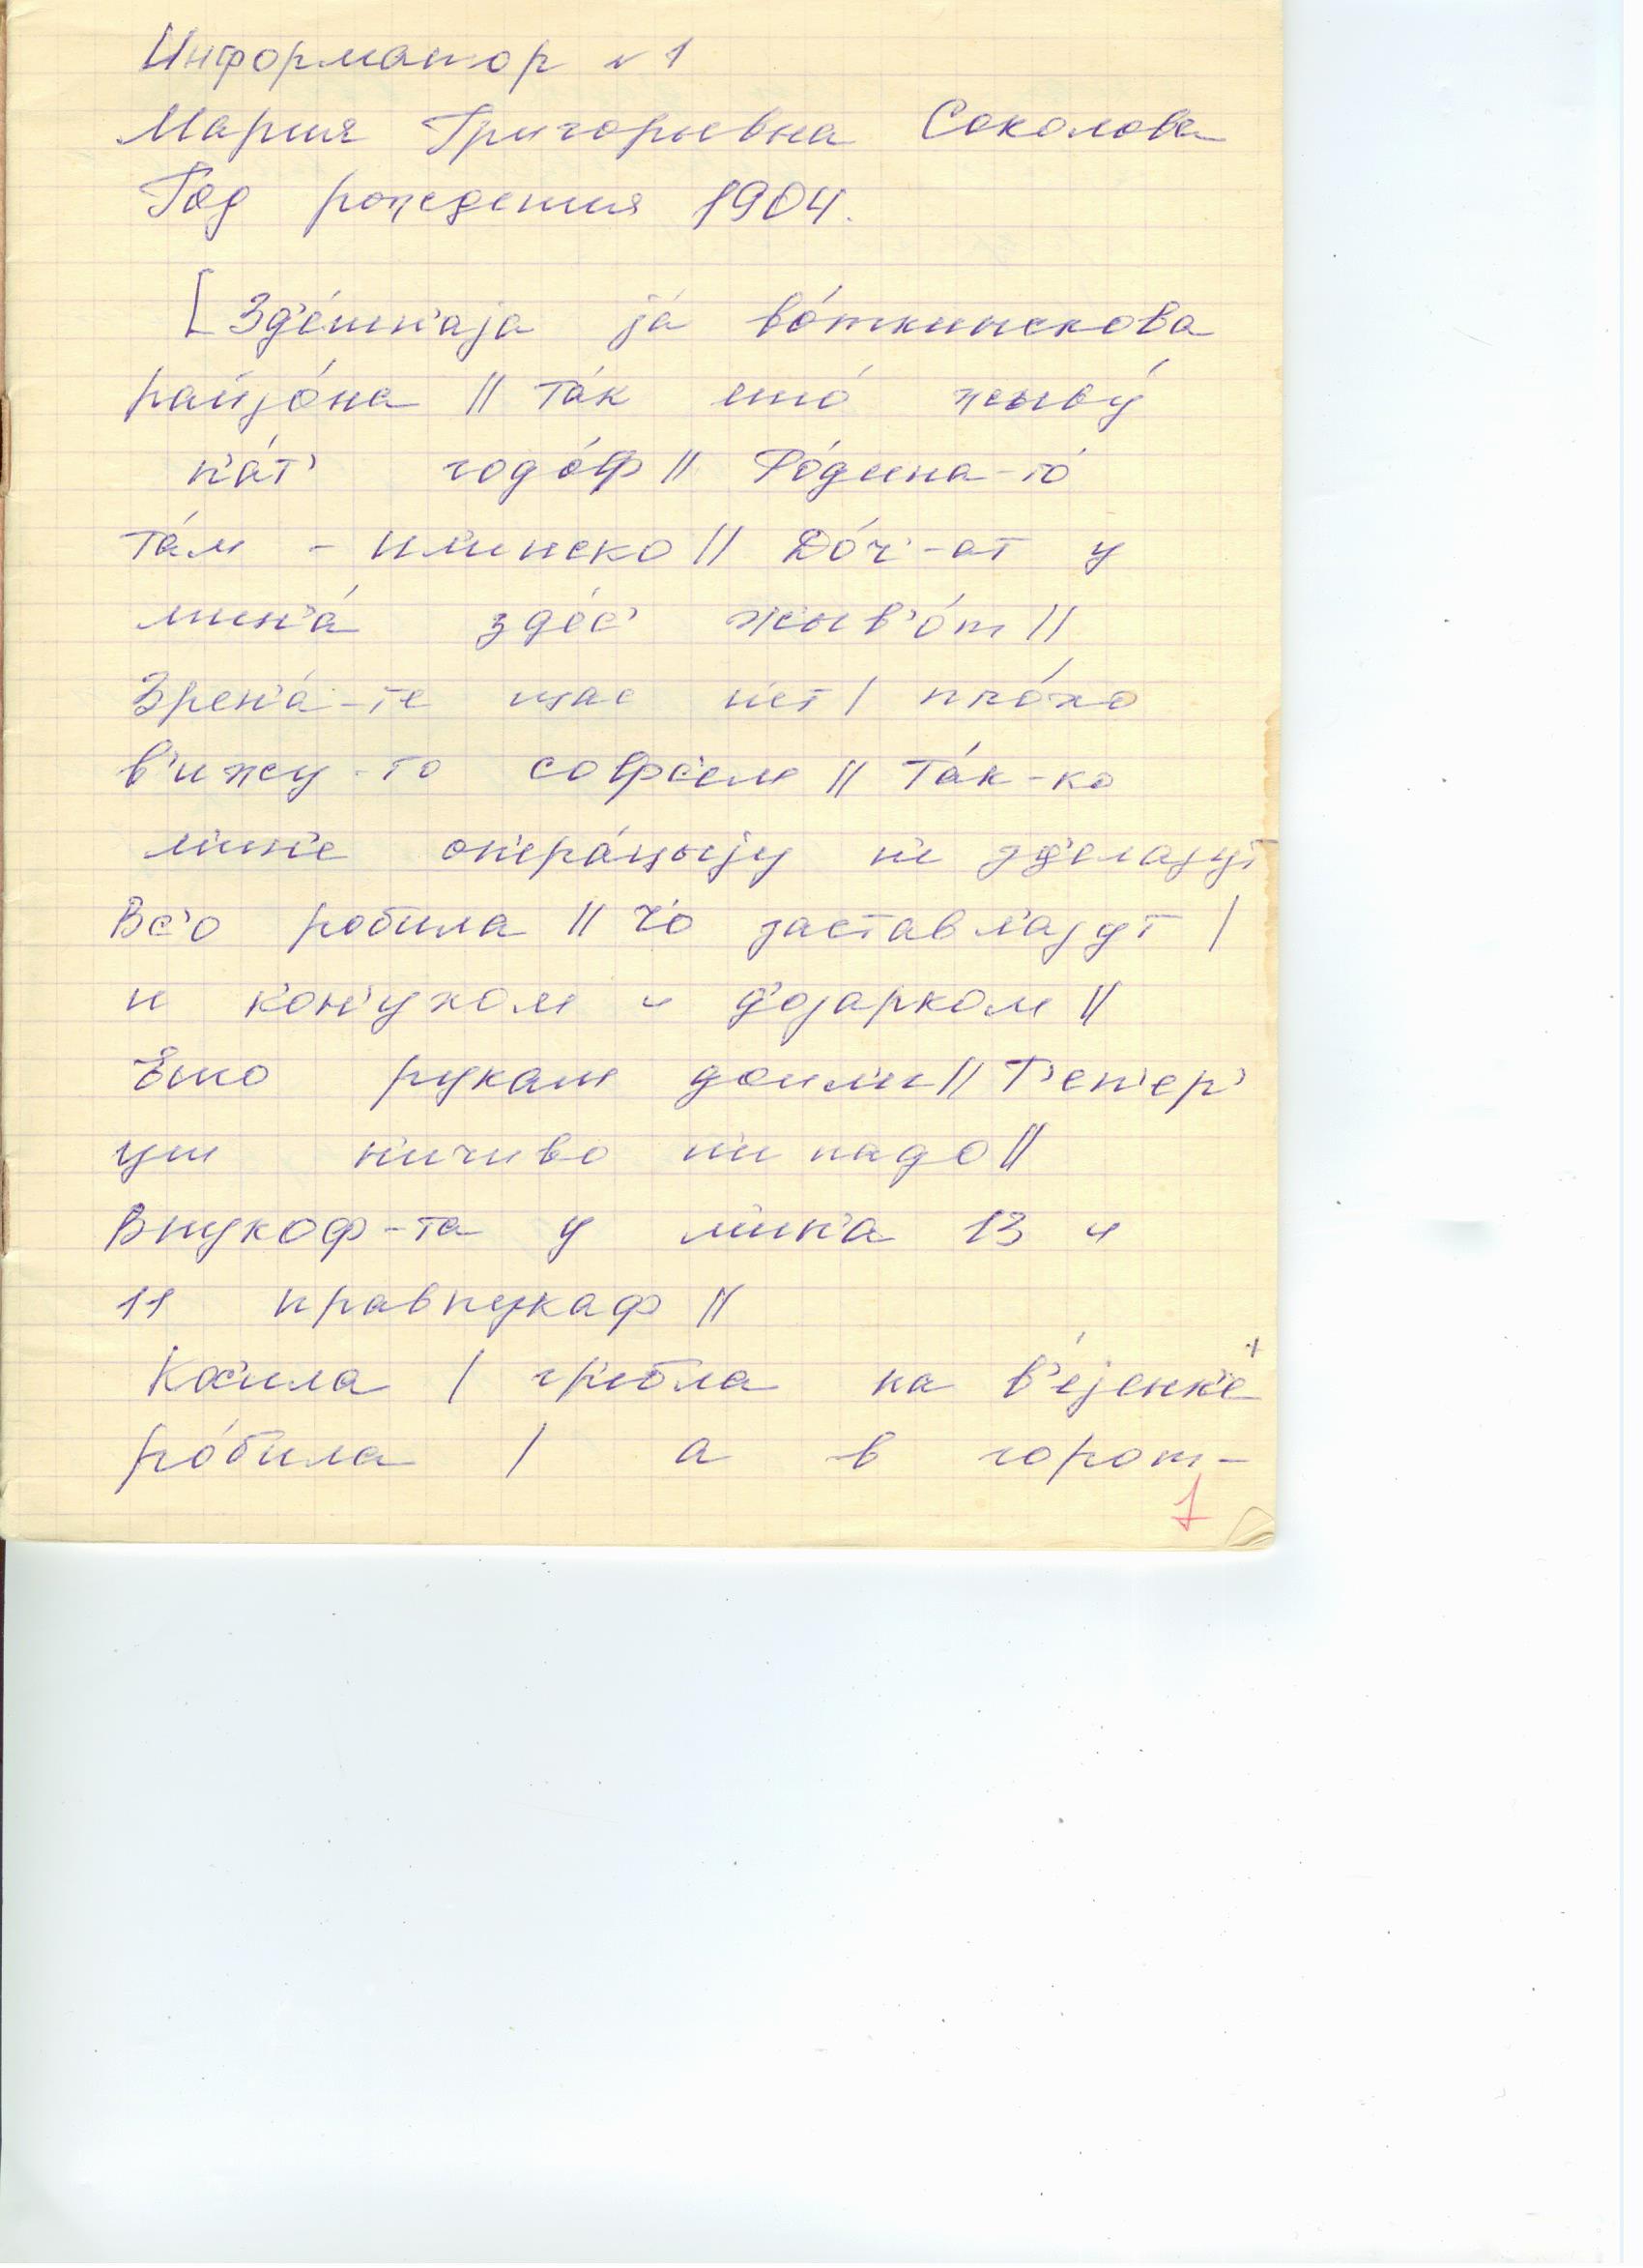 Информатор № 1
Мария Григорьевна Соколова
Год рождения 1904.
[Зд'е́шн'аjа jа́ во́ткинскова
раиjо́на || та́к што́ жыву́
п'а́т' годо́ф || Ро́дина-то́
та́м - ил'инско || До́ч'-ат у
мин'а́ зд'е́с' жыв'о́т ||
Зрен'а́-те щас н'ет | пло́хо
в'ижу-то софс'ем || та́к-ко
мин'е оп'ера́цыjу н'е зд'елаjут
Вс'о робила || чо застав л'аjут |
и кон'ухом и д'оjарком ||
Ешо рукам доил'и || Т'еп'ер'
уш н'ичиво н'и надо ||
Внукоф-та у мин'а 13 и
11 правнукаф ||
Кос'ила | гр'ибла на в'е́jенк'е +
ро́била | а в горот-
1